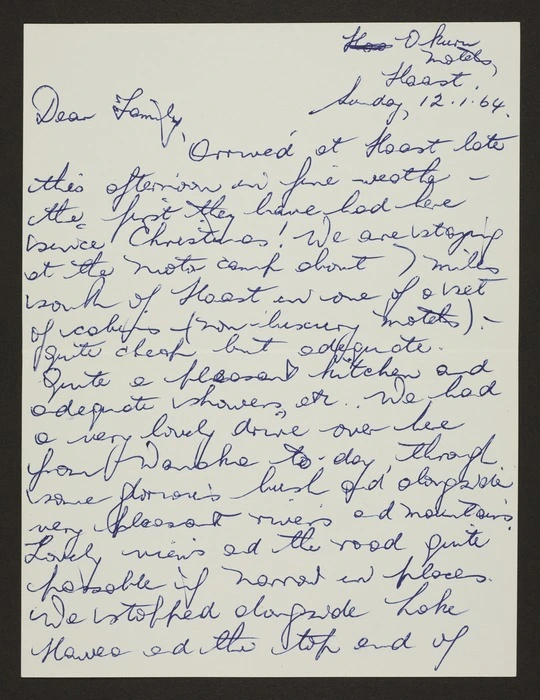 Okuru
Motels,
Haast.
Sunday, 12.1.64.
Dear Family,
Arrived at Haast late
this afternoon in fine weather –
the first they have had here
since Christmas! We are staying
at the Motor camp about 7 miles
south of Haast in one of a set
of cabins (non-luxury motels) –
quite cheap but adequate.
Quite a pleasant kitchen and
adequate showers, etc.. We had
a very lovely drive over here
from Wanaka to-day, through
some glorious bush and alongside
very pleasant rivers and mountains.
Lovely views and the road quite
passable if narrow in places.
We stopped alongside Lake
Hawea and the top end of